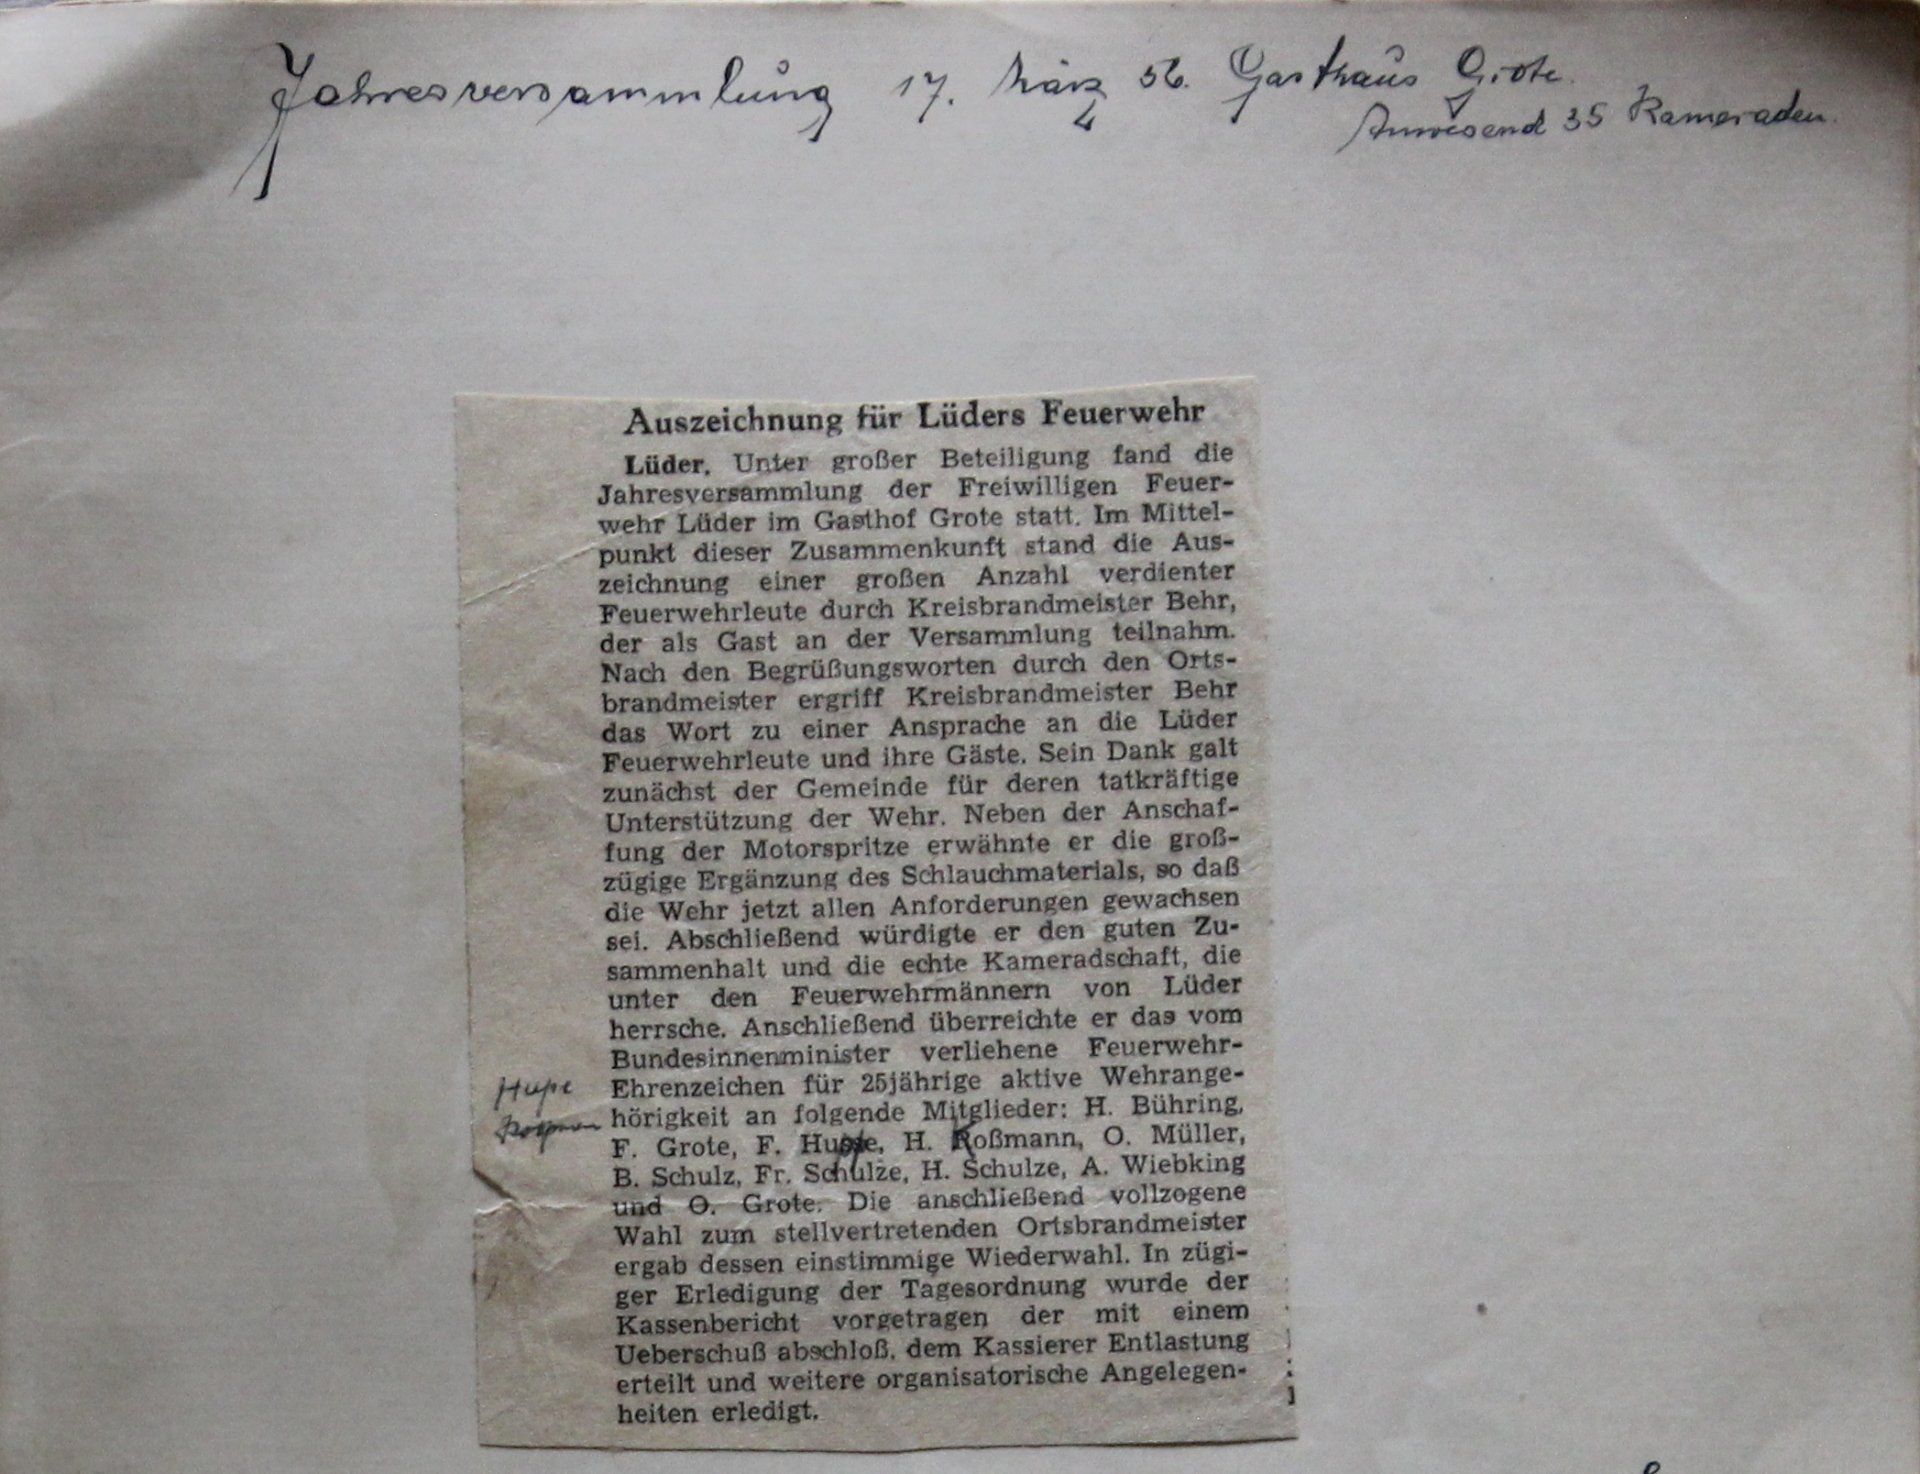 Jahresversammlung 17. März 56. Gasthaus Grote.
Anwesend 35 Kameraden.
Auszeichnung für Lüders Feuerwehr
Lüder. Unter großer Beteiligung fand die
Jahresversammlung der Freiwilligen Feuer-
wehr Lüder im Gasthof Grote statt. Im Mittel-
punkt dieser Zusammenkunft stand die Aus-
zeichnung einer großen Anzahl verdienter
Feuerwehrleute durch Kreisbrandmeister Behr,
der als Gast an der Versammlung teilnahm.
Nach den Begrüßungsworten durch den Orts-
brandmeister ergriff Kreisbrandmeister Behr
das Wort zu einer Ansprache an die Lüder
Feuerwehrleute und ihre Gäste. Sein Dank galt
zunächst der Gemeinde für deren tatkräftige
Unterstützung der Wehr. Neben der Anschaf-
fung der Motorspritze erwähnte er die groß-
zügige Ergänzung des Schlauchmaterials, so daß
die Wehr jetzt allen Anforderungen gewachsen
sei. Abschließend würdigte er den guten Zu-
sammenhalt und die echte Kameradschaft, die
unter den Feuerwehrmännern von Lüder
herrsche. Anschließend überreichte er das vom
Bundesinnenminister verliehene Feuerwehr-
Hupe Ehrenzeichen für 25jährige aktive Wehrange-
hörigkeit an folgende Mitglieder: H. Bühring,
F. Grote, F. Hupe, H. Roßmann, O. Müller,
B. Schulz, Fr. Schulze, H. Schulze, A. Wiebking
und O. Grote. Die anschließend vollzogene
Wahl zum stellvertretenden Ortsbrandmeister
ergab dessen einstimmige Wiederwahl. In zügi-
ger Erledigung der Tagesordnung wurde der
Kassenbericht vorgetragen der mit einem
Ueberschuß abschloß, dem Kassierer Entlastung
erteilt und weitere organisatorische Angelegen-
heiten erledigt.